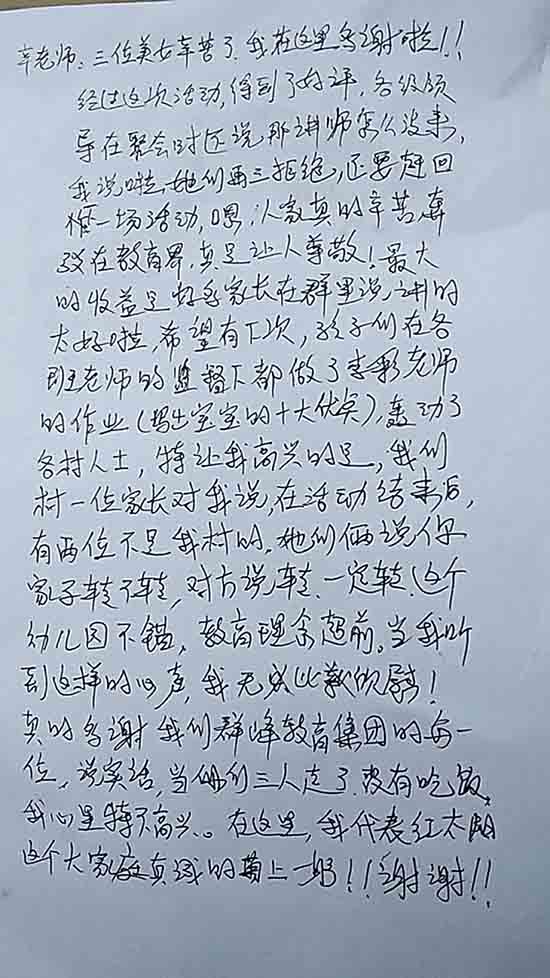 辛老师:三位美女辛苦了,我在这里多谢啦!!
经过这次活动,得到了好评,各级领
导在聚会时还说那讲师怎么没来,
我说啦,她们再三拒绝,还要赶回
做一场活动,嗯,人家真的辛苦奔
波在教育界,真是让人尊敬!最大
的收益是好多家长在群里说,讲的
太好啦,希望有下次,孩子们在各
班老师的监督下都做了李彩老师
的作业(写出宝宝的十大优点),轰动了
各村人士,特让我高兴的是,我们
村一位家长对我说,在活动结束后,
有两位不是我村的,她们俩说你
家子转不转,对方说转,一定转,这个
幼儿园不错,教育理念超前,当我听
到这样的心声,我无比欣慰!
真的多谢我们群峰教育集团的每一
位,说实话,当她们三人走了,没有吃饭,
我心里特不高兴。在这里,我代表红太阳
这个大家庭真诚的道上一声!!谢谢!!